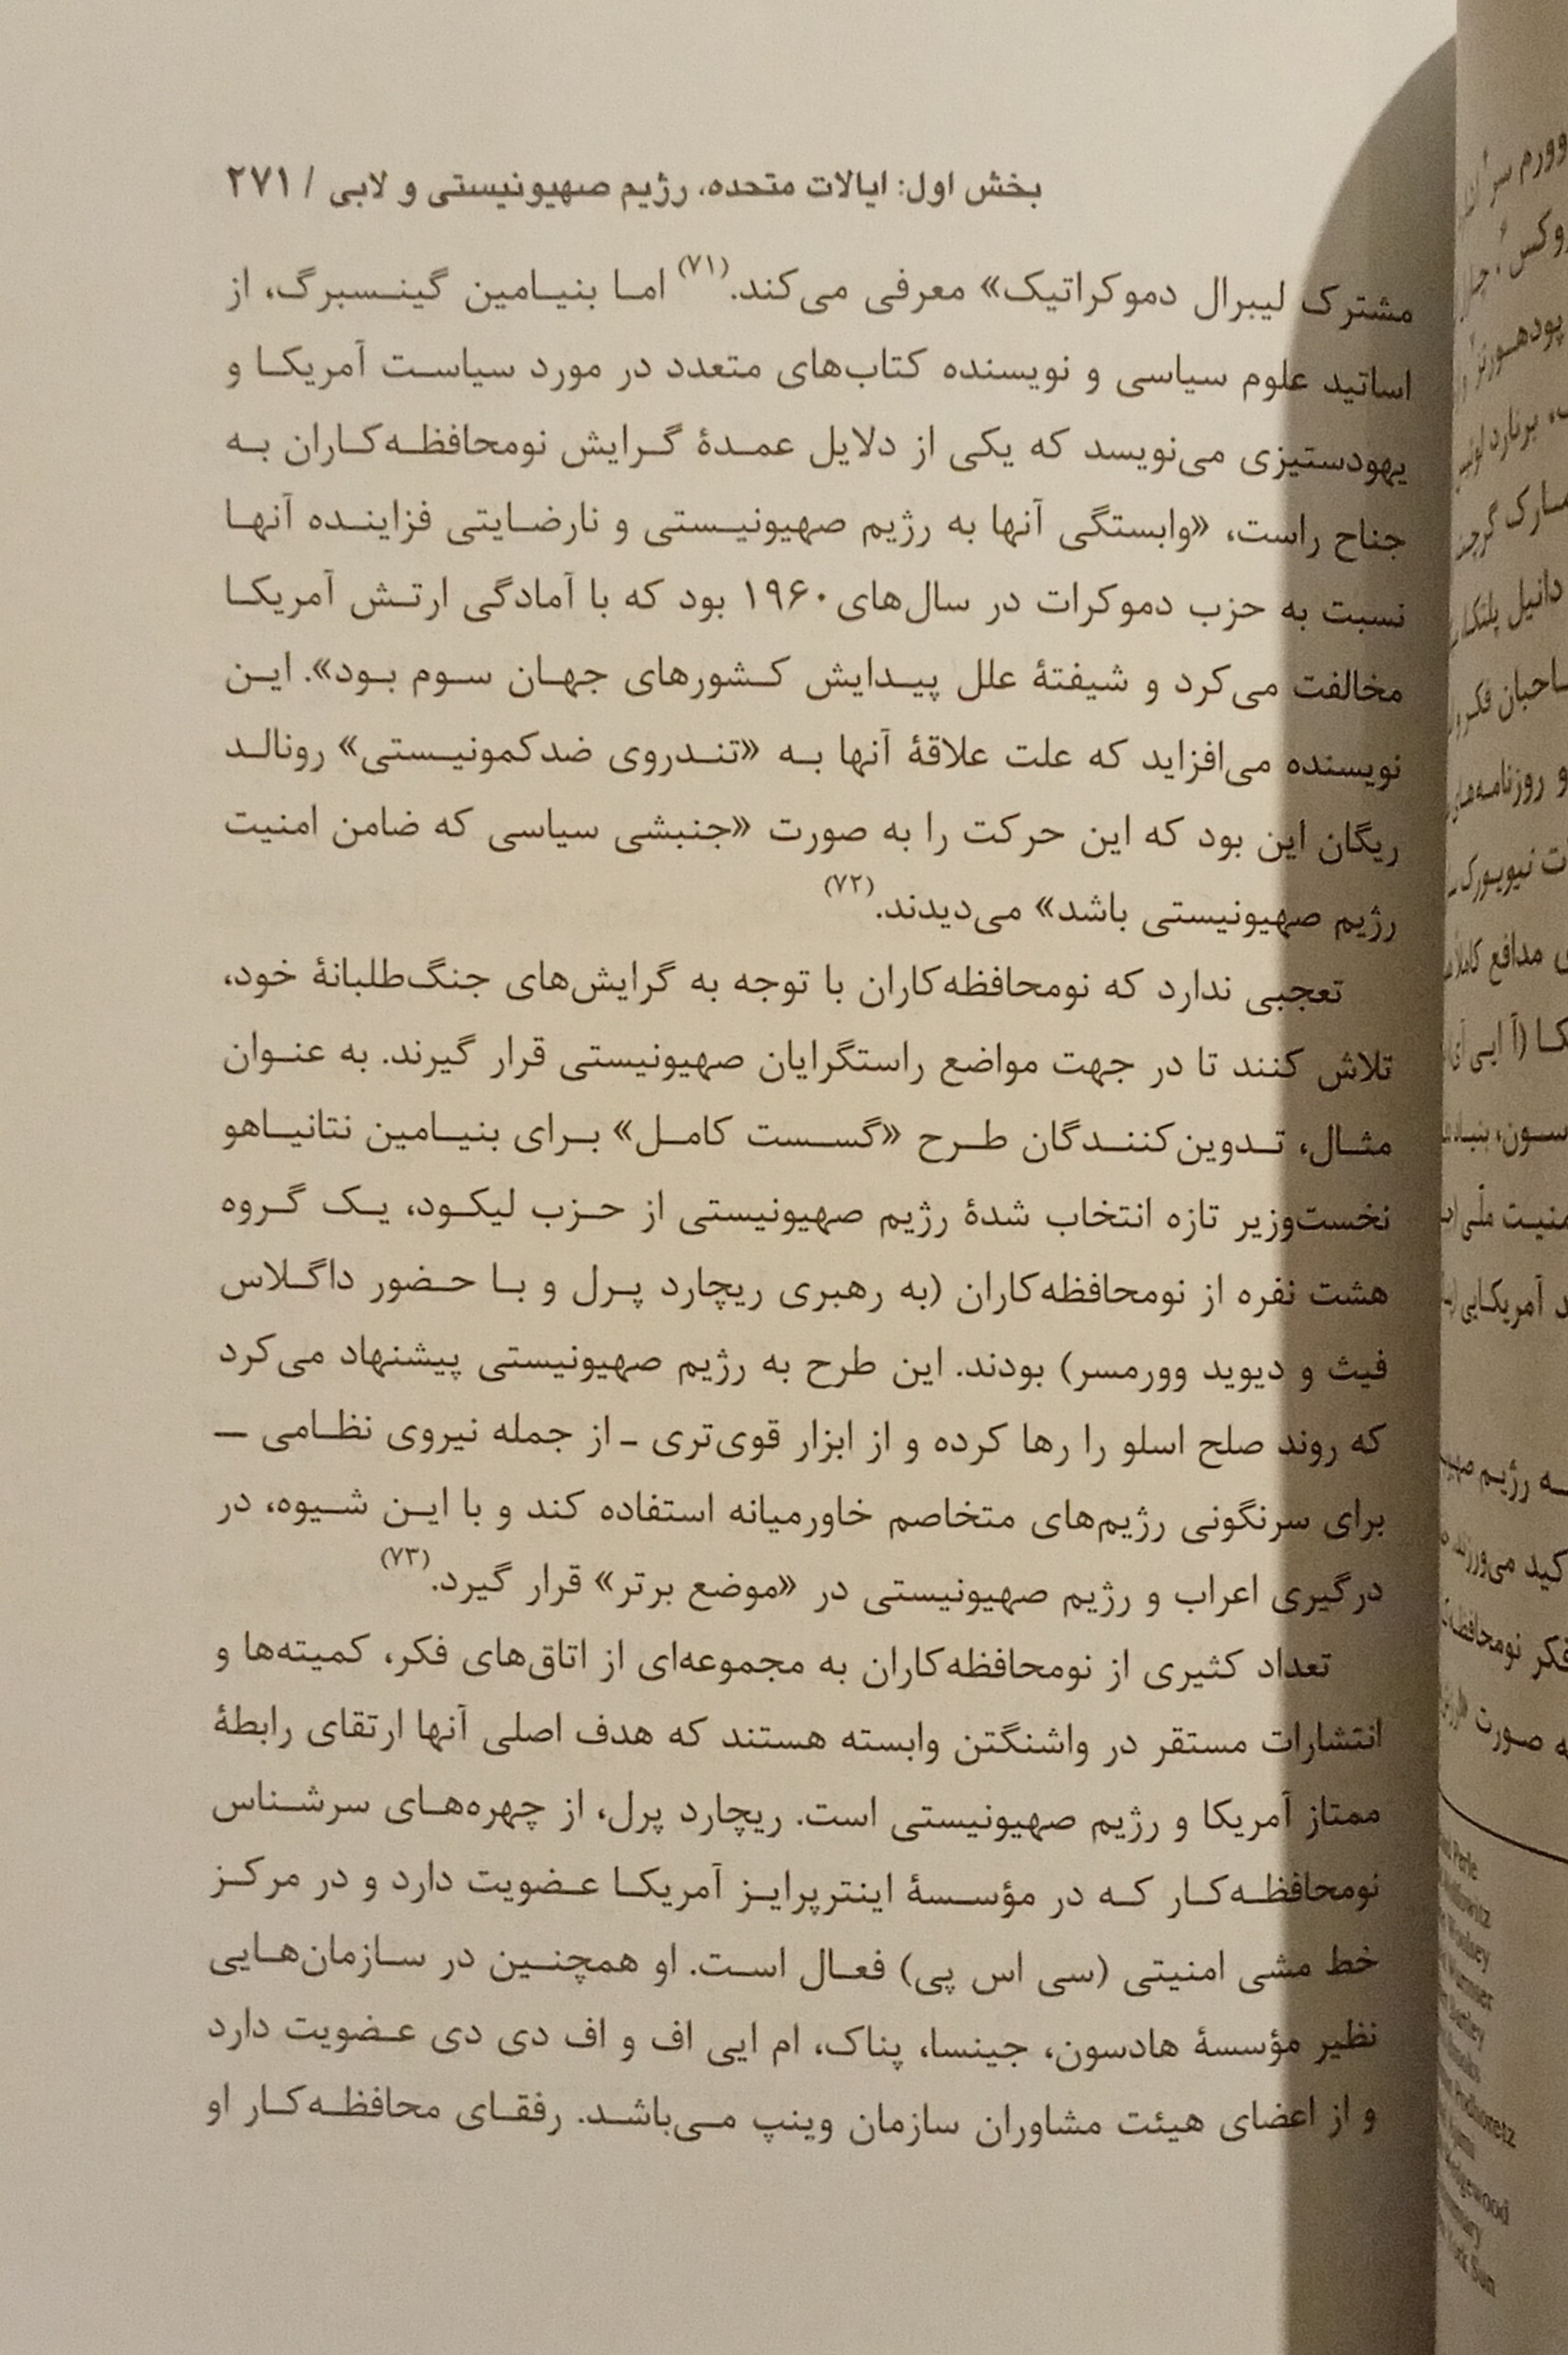 بخش اول: ایالات متحده، رژیم صهیونیستی و لابی / ۲۷۱
مشترک لیبرال دموکراتیک» معرفی می‌کند.(۷۱) اما بنیامین گینسبرگ، از
اساتید علوم سیاسی و نویسنده کتاب‌های متعدد در مورد سیاست آمریکا و
یهودستیزی می‌نویسد که یکی از دلایل عمدۀ گرایش نومحافظه‌کاران به
جناح راست، «وابستگی آنها به رژیم صهیونیستی و نارضایتی فزاینده آنها
نسبت به حزب دموکرات در سال‌های ۱۹۶۰ بود که با آمادگی ارتش آمریکا
مخالفت می‌کرد و شیفتۀ علل پیدایش کشورهای جهان سوم بود». این
نویسنده می‌افزاید که علت علاقۀ آنها به «تندروی ضدکمونیستی» رونالد
ریگان این بود که این حرکت را به صورت «جنبشی سیاسی که ضامن امنیت
رژیم صهیونیستی باشد» می‌دیدند.(۷۲)
تعجبی ندارد که نومحافظه‌کاران با توجه به گرایش‌های جنگ‌طلبانۀ خود،
تلاش کنند تا در جهت مواضع راستگرایان صهیونیستی قرار گیرند. به عنوان
مثال، تدوین‌کنندگان طرح «گسست کامل» برای بنیامین نتانیاهو
نخست‌وزیر تازه انتخاب شدۀ رژیم صهیونیستی از حزب لیکود، یک گروه
هشت نفره از نومحافظه‌کاران (به رهبری ریچارد پرل و با حضور داگلاس
فیث و دیوید وورمسر) بودند. این طرح به رژیم صهیونیستی پیشنهاد می‌کرد
که روند صلح اسلو را رها کرده و از ابزار قوی‌تری ـ از جمله نیروی نظامی —
برای سرنگونی رژیم‌های متخاصم خاورمیانه استفاده کند و با این شیوه، در
درگیری اعراب و رژیم صهیونیستی در «موضع برتر» قرار گیرد.(۷۳)
تعداد کثیری از نومحافظه‌کاران به مجموعه‌ای از اتاق‌های فکر، کمیته‌ها و
انتشارات مستقر در واشنگتن وابسته هستند که هدف اصلی آنها ارتقای رابطۀ
ممتاز آمریکا و رژیم صهیونیستی است. ریچارد پرل، از چهره‌های سرشناس
نومحافظه‌کار که در مؤسسۀ اینترپرایز آمریکا عضویت دارد و در مرکز
خط مشی امنیتی (سی اس پی) فعال است. او همچنین در سازمان‌هایی
نظیر مؤسسۀ هادسون، جینسا، پناک، ام ایی اف و اف دی دی عضویت دارد
و از اعضای هیئت مشاوران سازمان وینپ می‌باشد. رفقای محافظه‌کار او